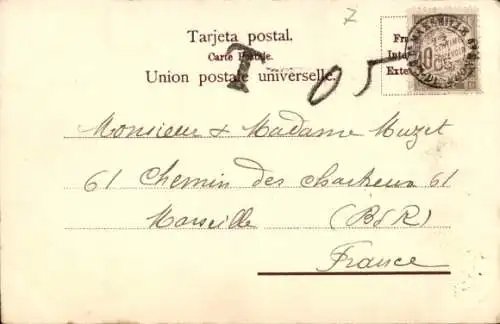 7
Tarjeta postal.
Carte Postale.
Union postale universelle.
T 05
Fra
Inte
Exte
MARSEILLE
10 CENTIMES
05
Monsieur & Madame Muzet
61 Chemin des Chartreux 61
Marseille (BdR)
France